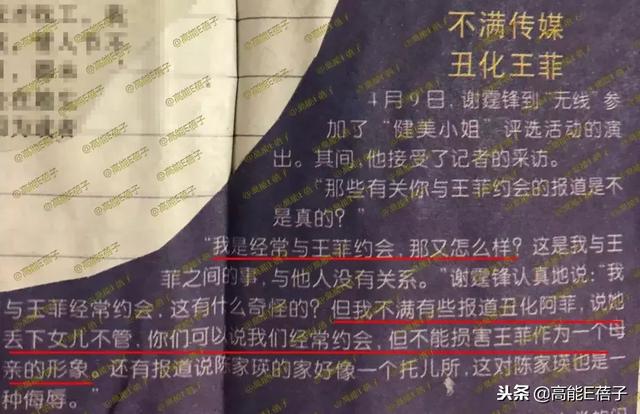 不满传媒
丑化王菲
4月9日，谢霆锋到“无线”参
加了“健美小姐”评选活动的演
出。其间，他接受了记者的采访。
“那些有关你与王菲约会的报道是不
是真的？”
“我是经常与王菲约会，那又怎么样？这是我与王
菲之间的事，与他人没有关系。”谢霆锋认真地说：“我
与王菲经常约会，这有什么奇怪的？但我不满有些报道丑化阿菲，说她
丢下女儿不管，你们可以说我们经常约会，但不能损害王菲作为一个母
亲的形象。还有报道说陈家瑛的家好像一个托儿所，这对陈家瑛也是一
种侮辱。”
头条 @高能E蓓子
@高能E蓓子